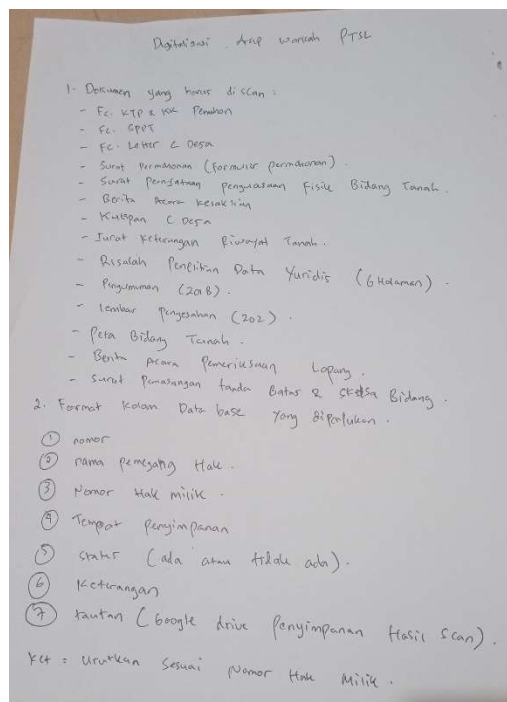 Digitalisasi Arsip Warkah PTSL
1. Dokumen yang harus di scan :
- Fc. KTP & KK Pemohon
- Fc. SPPT
- Fc. Letter C Desa
- Surat Permohonan (Formulir permohonan).
- Surat Pernyataan Penguasaan Fisik Bidang Tanah.
- Berita Acara Kesaksian
- Kutipan C Desa
- Surat Keterangan Riwayat Tanah.
- Risalah Penelitian Data Yuridis (6 Halaman).
- Pengumuman (201B).
- lembar Pengesahan (202).
- Peta Bidang Tanah.
- Berita Acara Pemeriksaan Lapang.
- Surat Pemasangan tanda Batas & Sketsa Bidang.
2. Format Kolom Data base yang diperlukan.
① nomor
② nama pemegang Hak.
③ Nomor Hak milik.
④ Tempat penyimpanan
⑤ status (ada atau tidak ada).
⑥ Keterangan
⑦ tautan (Google drive Penyimpanan Hasil Scan).
Ket = Urutkan Sesuai Nomor Hak Milik.